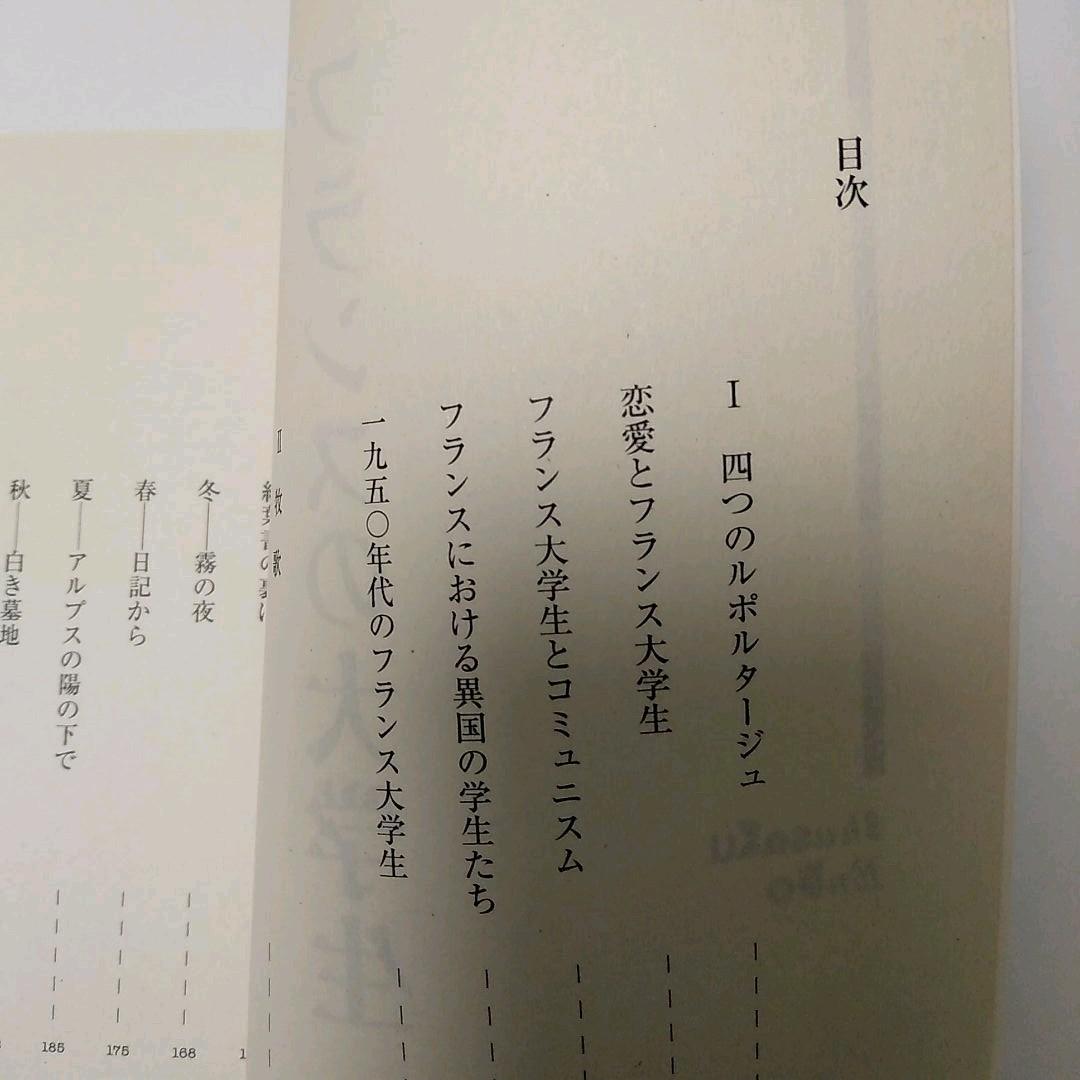 目次
I 四つのルポルタージュ
恋愛とフランス大学生
フランス大学生とコミュニスム
フランスにおける異国の学生たち
一九五〇年代のフランス大学生
II 牧歌
冬——霧の夜
168
春——日記から
175
夏——アルプスの陽の下で
185
秋——白き墓地
フランスの大学生
Shusaku
Endo